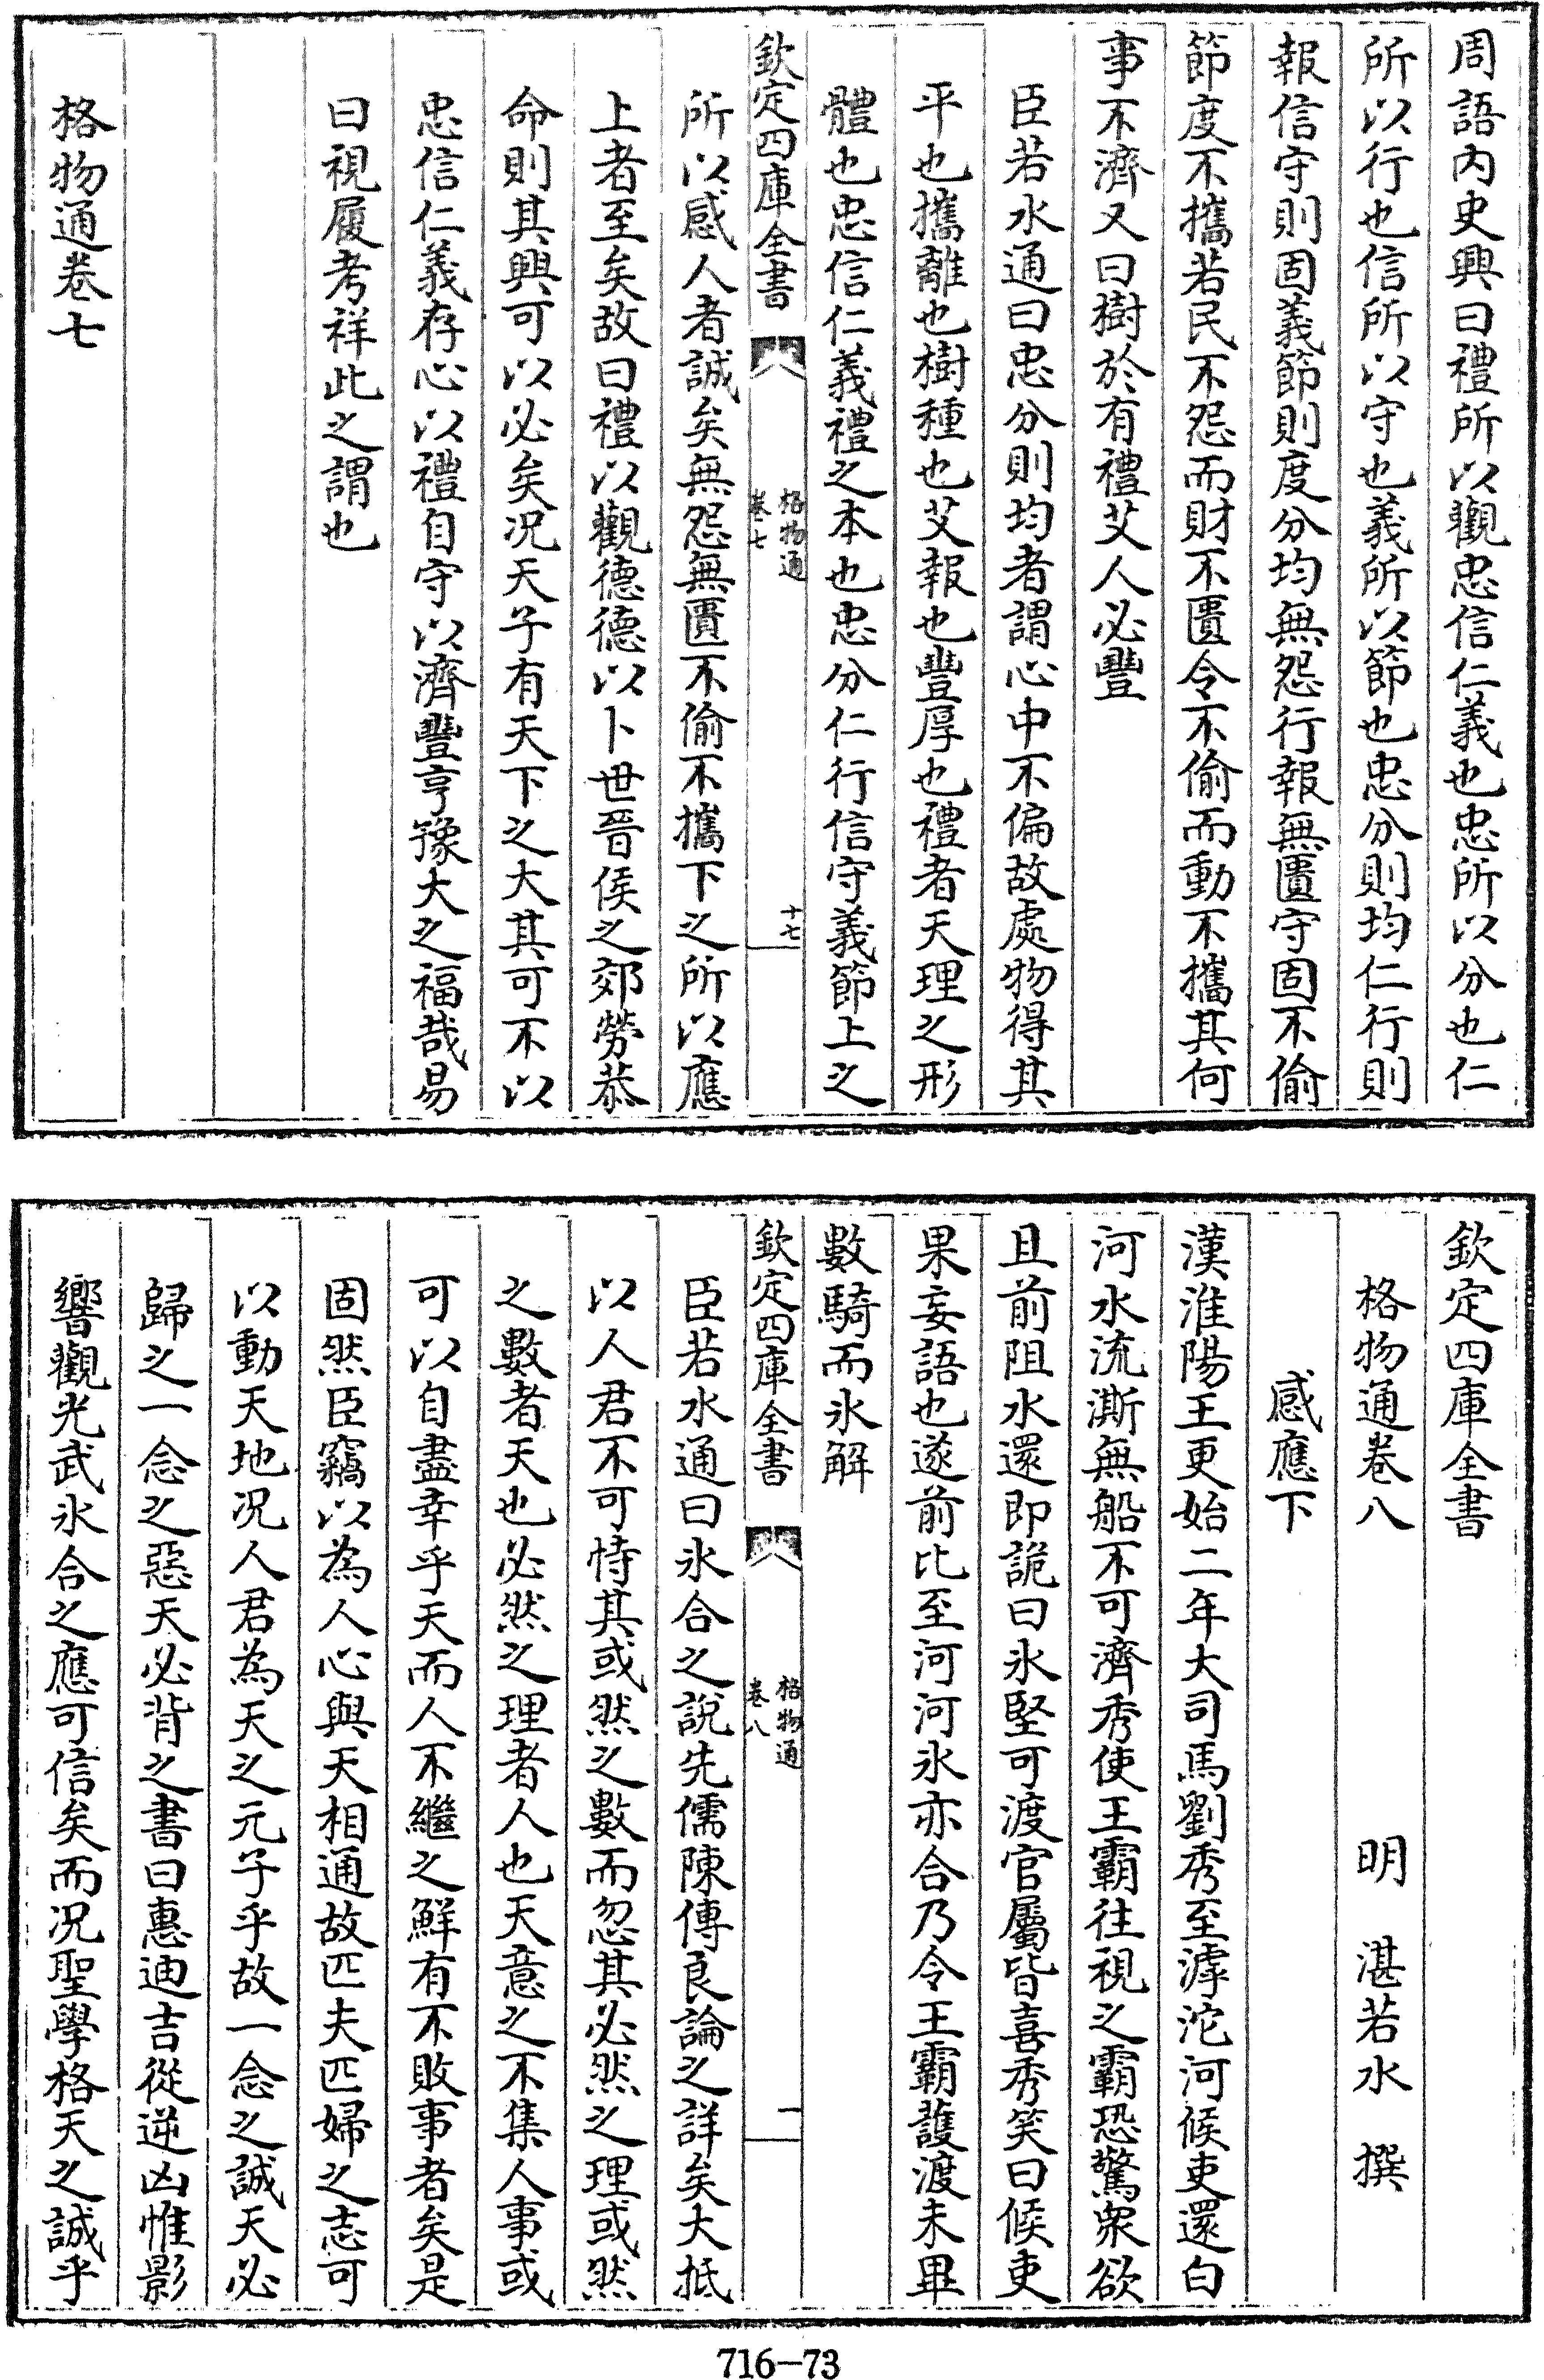 周語内史興曰禮所以觀忠信仁義也忠所以分也仁
所以行也信所以守也義所以節也忠分則均仁行則
報信守則固義節則度分均無怨行報無匱守固不偷
節度不攜若民不怨而財不匱令不偷而動不攜其何
事不濟又曰樹於有禮艾人必豐
臣若水通曰忠分則均者謂心中不偏故處物得其
平也攜離也樹種也艾報也豐厚也禮者天理之形
體也忠信仁義禮之本也忠分仁行信守義節上之
欽定四庫全書
格物通
卷七
十七
所以感人者誠矣無怨無匱不偷不攜下之所以應
上者至矣故曰禮以觀德德以卜世晉侯之郊勞恭
命則其興可以必矣况天子有天下之大其可不以
忠信仁義存心以禮自守以濟豐亨豫大之福哉易
曰視履考祥此之謂也
格物通卷七
欽定四庫全書
格物通卷八
明 湛若水 撰
感應下
漢淮陽王更始二年大司馬劉秀至滹沱河候吏還白
河水流澌無船不可濟秀使王霸往視之霸恐驚衆欲
且前阻水還即詭曰氷堅可渡官屬皆喜秀笑曰候吏
果妄語也遂前比至河河氷亦合乃令王霸護渡未畢
數騎而氷解
欽定四庫全書
格物通
卷八
一
臣若水通曰氷合之說先儒陳傅良論之詳矣大抵
以人君不可恃其或然之數而忽其必然之理或然
之數者天也必然之理者人也天意之不集人事或
可以自盡幸乎天而人不繼之鮮有不敗事者矣是
固然臣竊以為人心與天相通故匹夫匹婦之志可
以動天地况人君為天之元子乎故一念之誠天必
歸之一念之惡天必背之書曰惠迪吉從逆凶惟影
響觀光武氷合之應可信矣而况聖學格天之誠乎
716-73